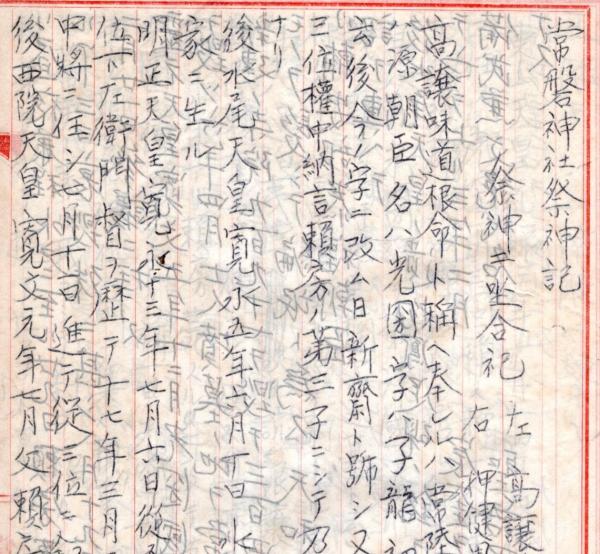 常磐神社祭神記
祭神二坐合祀 左 高讓
右 押健
高讓味道根命ト稱ヘ奉ルハ常陸
ハ源朝臣名ハ光圀字ハ子龍初
云後今ノ字ニ改ム日新齋ト號シ又
三位權中納言賴房ノ第三子ニシテ乃
ナリ
後水尾天皇寛永五年六月十日水
家ニ生ル
明正天皇寛永十三年七月六日從
位下左衛門督ヲ歴テ十七年三月
中將ニ任シ七月十一日進テ從三位ニ
後西院天皇寛文元年七月父賴